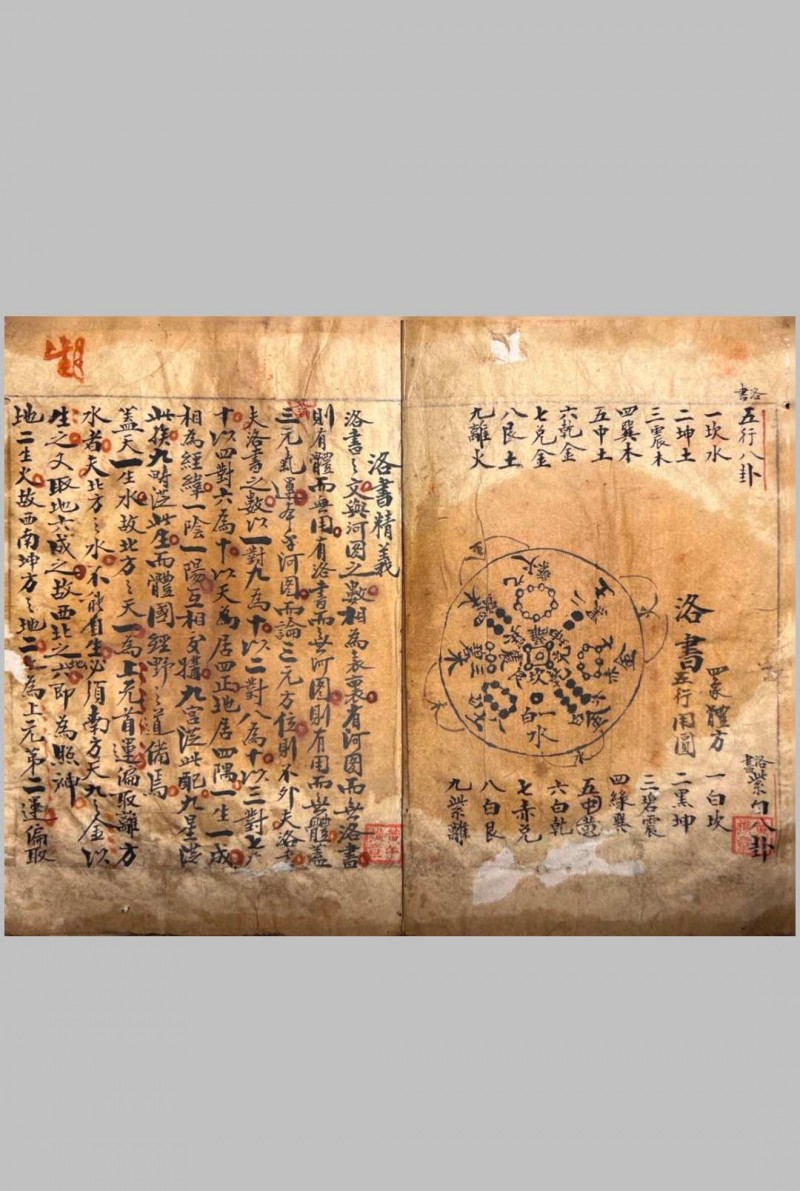 洛書五行八卦
一坎水
二坤土
三震木
四巽木
五中土
六乾金
七兌金
八艮土
九離火
洛書
四象體方
五行用圓
一白
水
九
紫火
洛書紫白八卦
一白坎
二黑坤
三碧震
四綠巽
五中黃
六白乾
七赤兌
八白艮
九紫離
洛書精義
洛書之文與河图之數相為表裏有河图而無洛書
則有體而無用有洛書而無河图則有用而無體蓋
三元氣運本乎河图而論三元方位則不外夫洛書
夫洛書之數以一對九為十以二對八為十以三對七為
十以四對六為十以天為居四正地居四隅一生一成
相為經緯一陰一陽互相交搆九宮從此配九星從
此族九疇從此生而體國經野之道備焉
蓋天一生水故北方之天一為上元首運徧取離方
水者夫北方之水不能自生必須南方天九之金以
生之又取地六成之故西北之六即為照神
地二生火故西南坤方之地二為上元第二運徧取